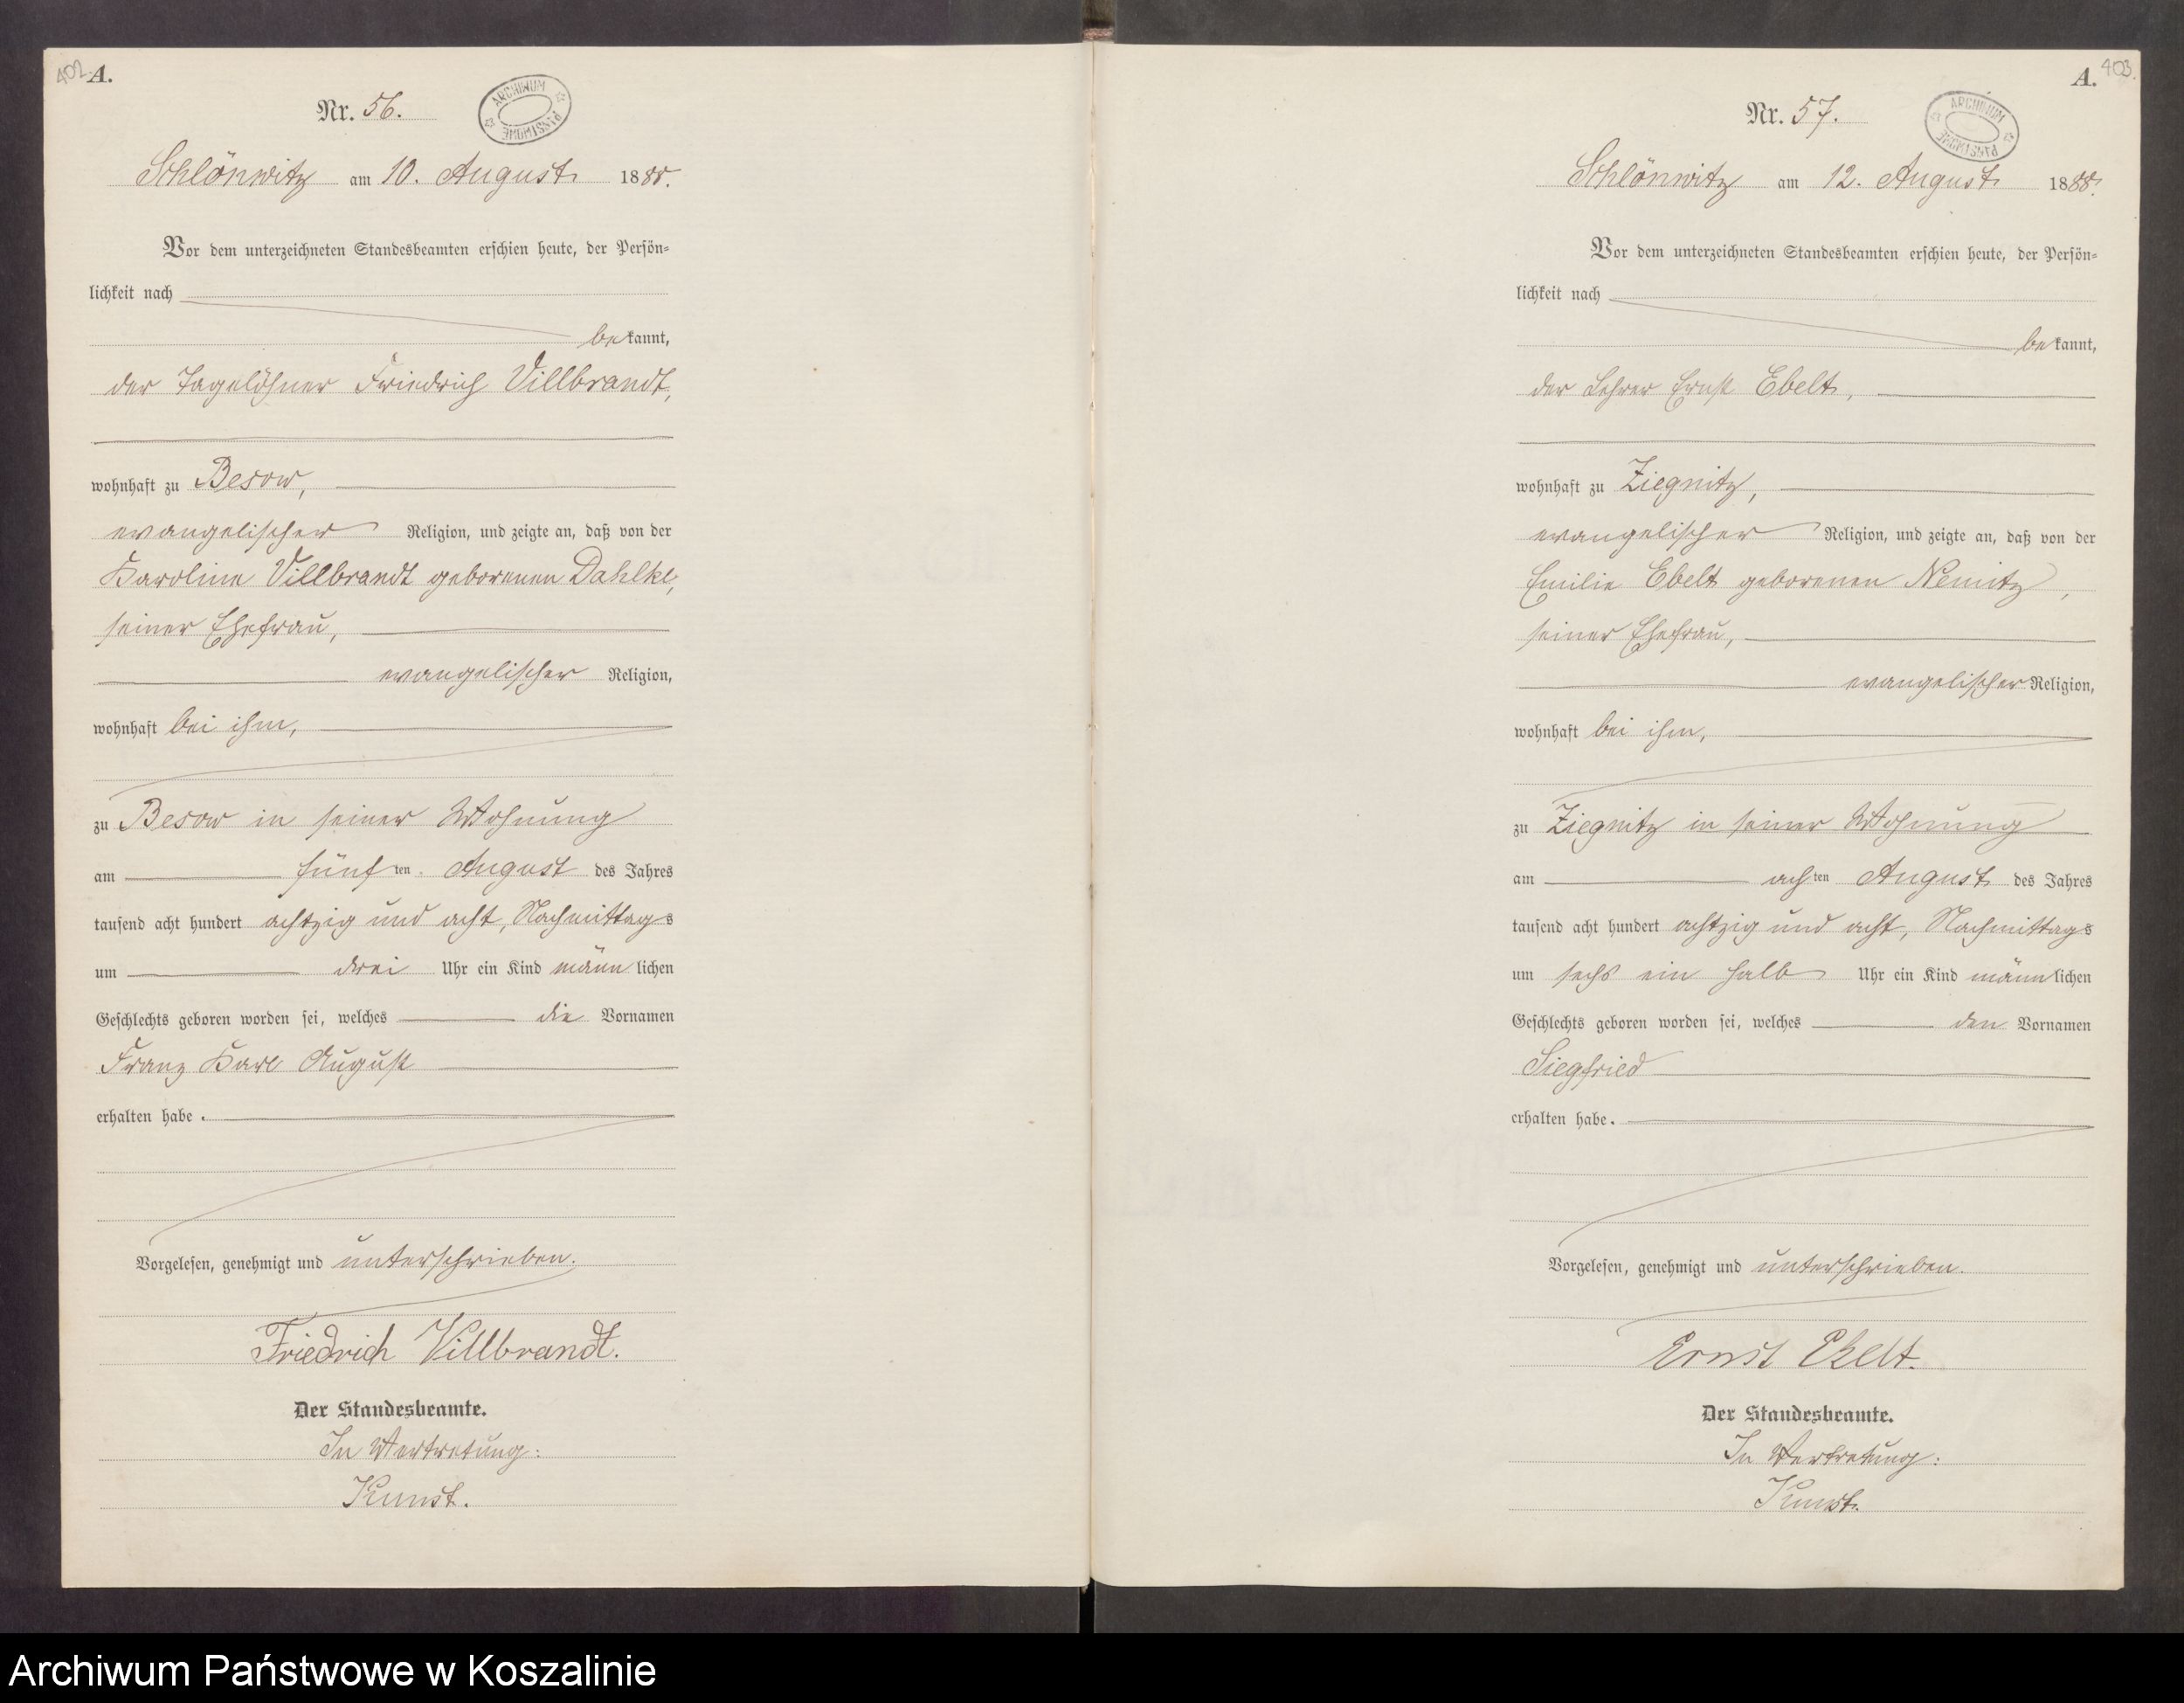 402 A.
Nr. 56.
ARCHIWUM PAŃSTWOWE
Schlönwitz am 10. August 1888.
Vor dem unterzeichneten Standesbeamten erschien heute, der Persön-
lichkeit nach
bekannt,
der Tagelöhner Friedrich Villbrandt,
wohnhaft zu Besow,
evangelischer Religion, und zeigte an, daß von der
Karoline Villbrandt geborenen Dahlke,
seiner Ehefrau,
evangelischer Religion,
wohnhaft bei ihm,
zu Besow in seiner Wohnung
am fünften August des Jahres
tausend acht hundert achtzig und acht, Nachmittags
um drei Uhr ein Kind männlichen
Geschlechts geboren worden sei, welches die Vornamen
Franz Karl August
erhalten habe.
Vorgelesen, genehmigt und unterschrieben.
Friedrich Villbrandt.
Der Standesbeamte.
In Vertretung:
Kunst.
A. 403.
Nr. 57.
ARCHIWUM PAŃSTWOWE
Schlönwitz am 12. August 1888.
Vor dem unterzeichneten Standesbeamten erschien heute, der Persön-
lichkeit nach
bekannt,
der Lehrer Ernst Ebelt,
wohnhaft zu Ziegnitz,
evangelischer Religion, und zeigte an, daß von der
Emilie Ebelt geborenen Nemitz,
seiner Ehefrau,
evangelischer Religion,
wohnhaft bei ihm,
zu Ziegnitz in seiner Wohnung
am achten August des Jahres
tausend acht hundert achtzig und acht, Nachmittags
um sechs ein halb Uhr ein Kind männlichen
Geschlechts geboren worden sei, welches den Vornamen
Siegfried
erhalten habe.
Vorgelesen, genehmigt und unterschrieben.
Ernst Ebelt.
Der Standesbeamte.
In Vertretung:
Kunst.
Archiwum Państwowe w Koszalinie